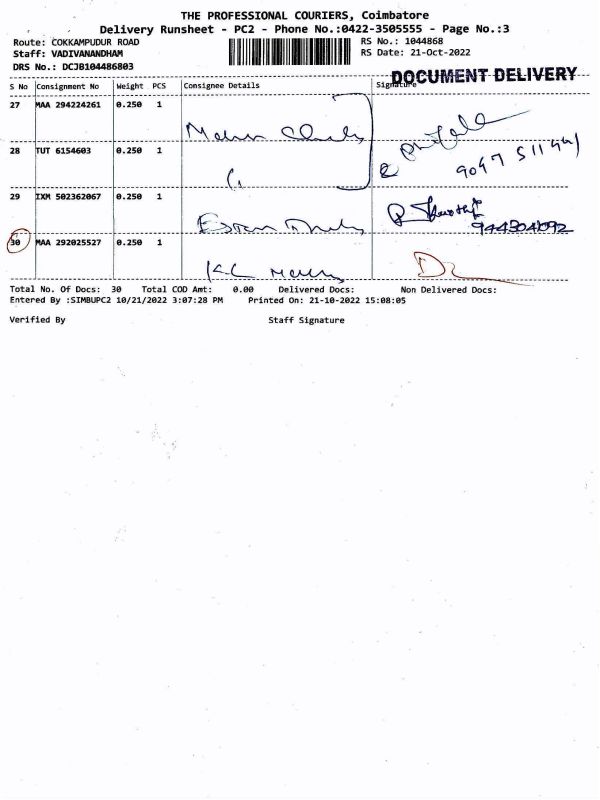 THE PROFESSIONAL COURIERS, Coimbatore
Delivery Runsheet - PC2 - Phone No.:0422-3505555 - Page No.:3
Route: COKKAMPUDUR ROAD
RS No.: 1044868
Staff: VADIVANANDHAM
RS Date: 21-Oct-2022
DRS No.: DCJB104486803
DOCUMENT DELIVERY
S No Consignment No Weight PCS Consignee Details Signature
27 MAA 294224261 0.250 1
28 TUT 6154603 0.250 1
29 IXM 502362067 0.250 1
30 MAA 292025527 0.250 1
Total No. Of Docs: 30 Total COD Amt: 0.00 Delivered Docs: Non Delivered Docs:
Entered By :SIMBUPC2 10/21/2022 3:07:28 PM Printed On: 21-10-2022 15:08:05
Verified By Staff Signature